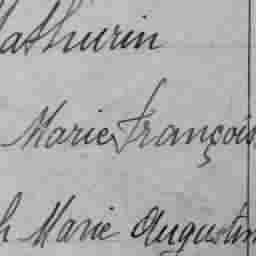 Mathurin
Marie François
h Marie Augustin